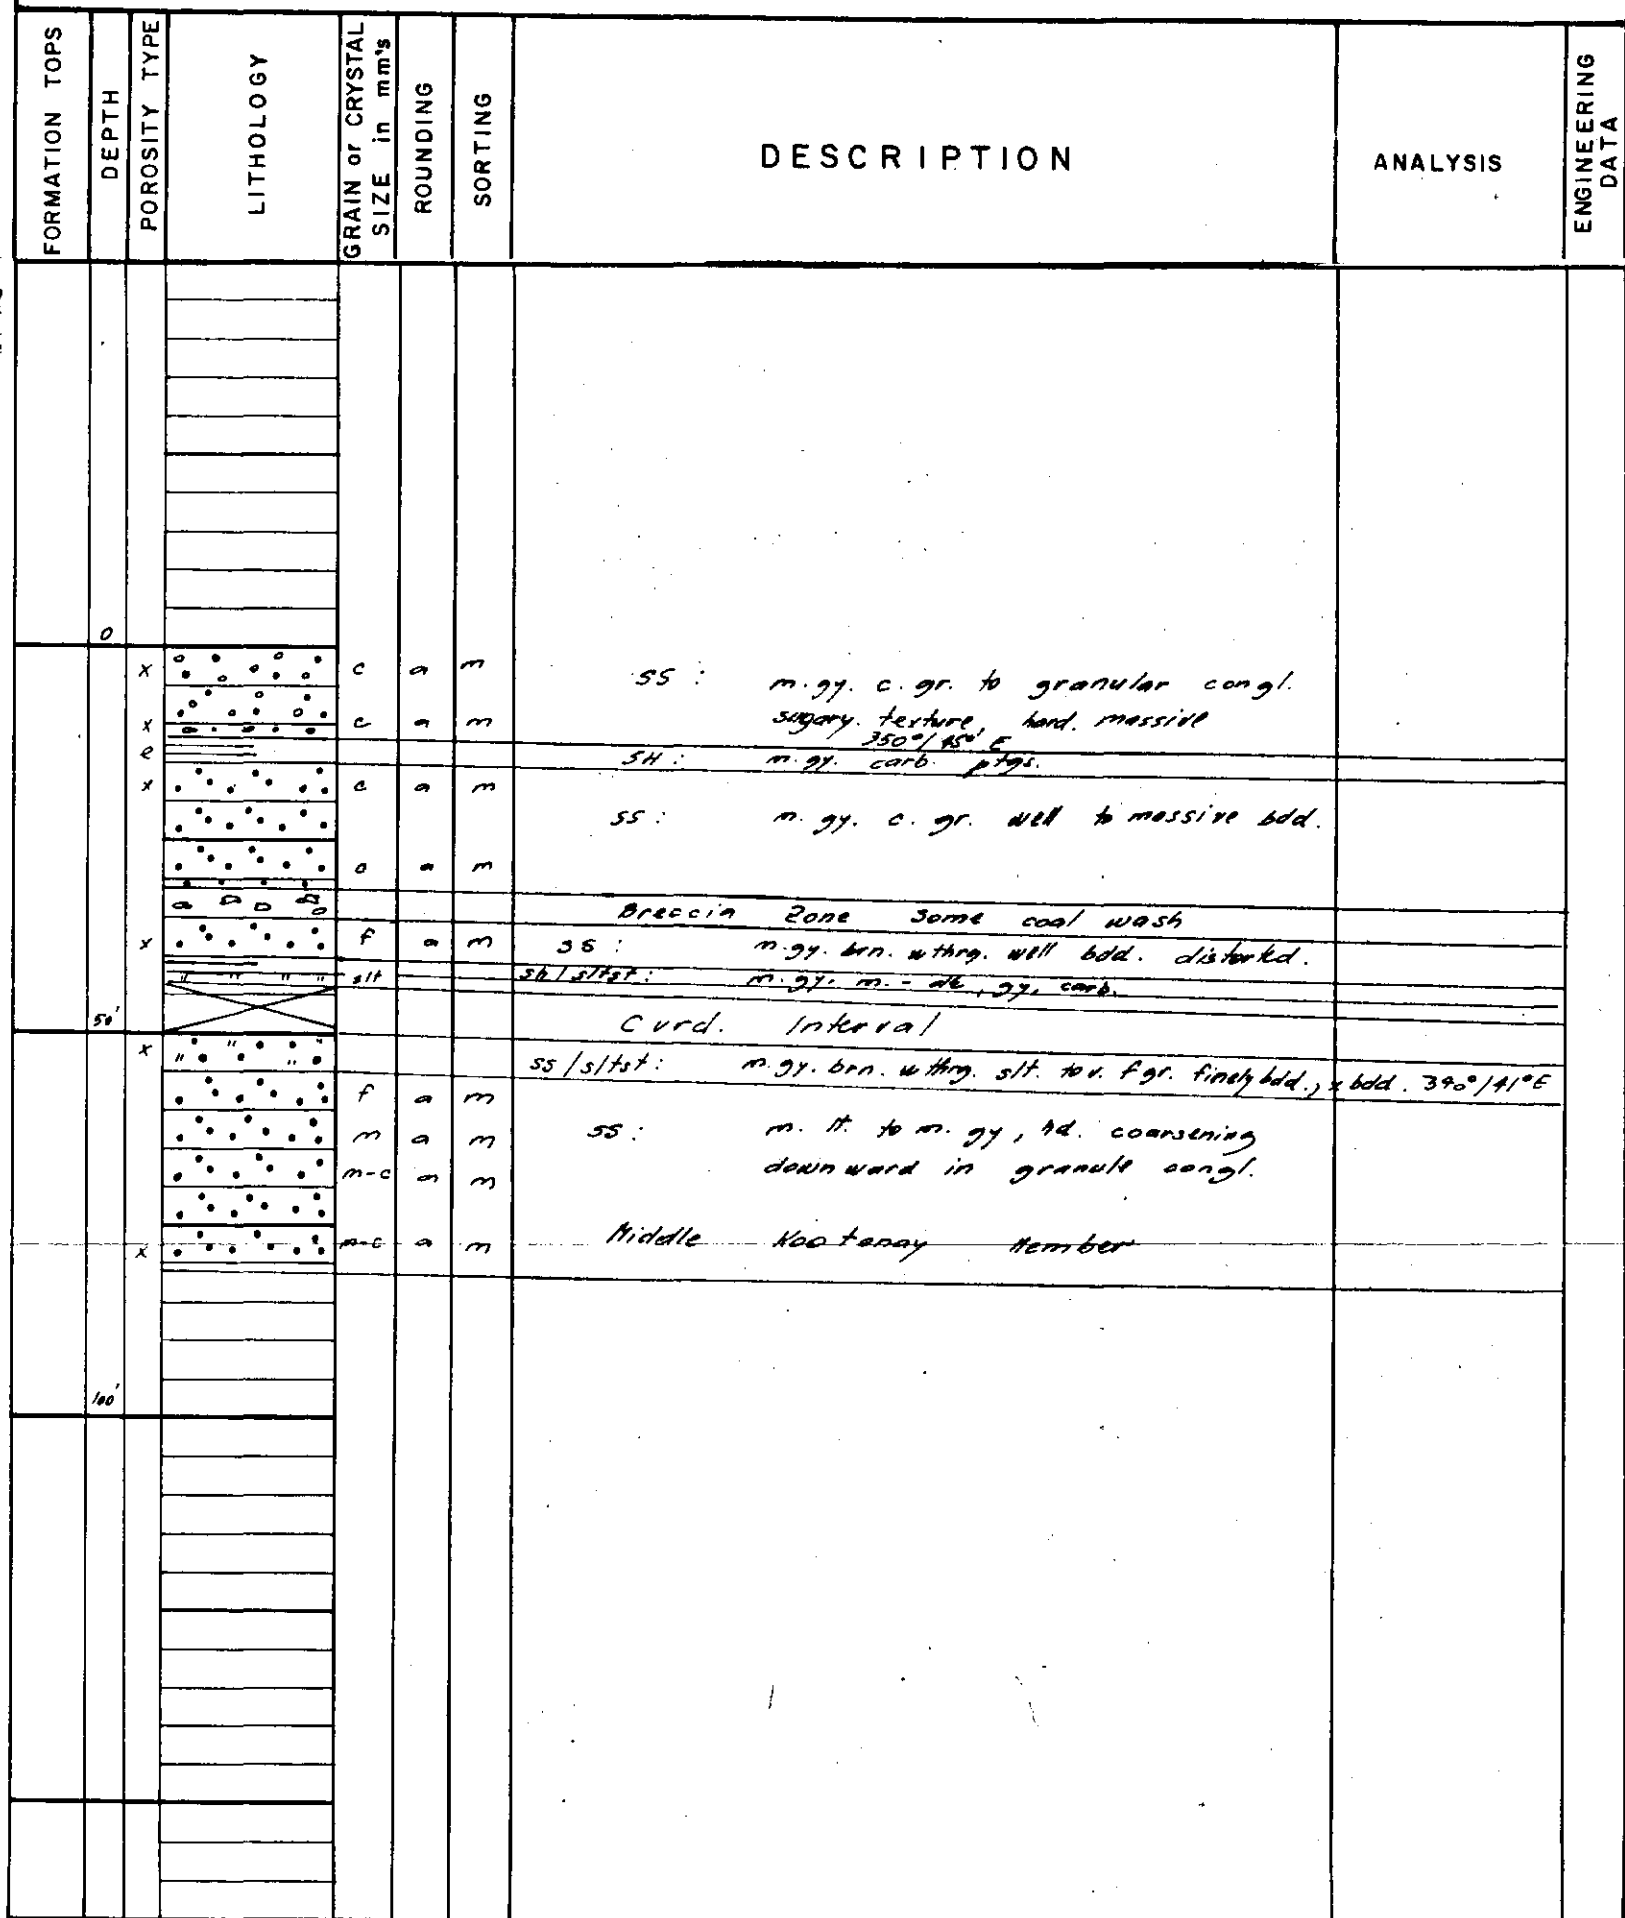 FORMATION TOPS
DEPTH
POROSITY TYPE
LITHOLOGY
GRAIN or CRYSTAL
SIZE in mm's
ROUNDING
SORTING
DESCRIPTION
ANALYSIS
ENGINEERING
DATA
0
x c a m SS : m. gy. c. gr. to granular congl.
x c a m sugary. texture, hard. massive
350°/45° E
e SH : m. gy. carb. ptgs.
x c a m
ss : m. gy. c. gr. well to massive bdd.
c a m
Breccia Zone Some coal wash
x f a m ss : m. gy. brn. wthrg. well bdd. distorted.
slt sh/sltst : m. gy. m. - dk. gy. carb.
50' Cvrd. Interval
x ss/sltst : m. gy. brn. wthrg. slt. to v. f gr. finely bdd., x bdd. 340°/41°E
f a m
m a m ss : m. lt. to m. gy, hd. coarsening
m-c a m downward in granule congl.
x m-c a m Middle Kootenay Member
100'